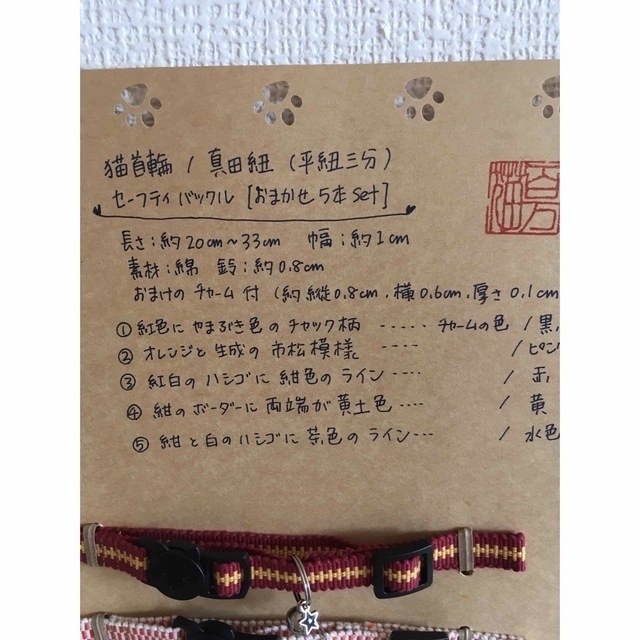 猫首輪 / 真田紐 (平紐三分)
セーフティバックル [おまかせ5本set]
長さ:約20cm〜33cm 幅:約1cm
素材:綿 鈴:約0.8cm
おまけのチャーム付 (約縦0.8cm.横0.6cm.厚さ0.1cm
①紅色にやまぶき色のチャック柄 ····· チャームの色 / 黒.
②オレンジと生成の市松模様 ···· / ピン
③紅白のハシゴに紺色のライン···· / 赤.
④紺のボーダーに両端が黄土色···· / 黄
⑤紺と白のハシゴに茶色のライン··· / 水色